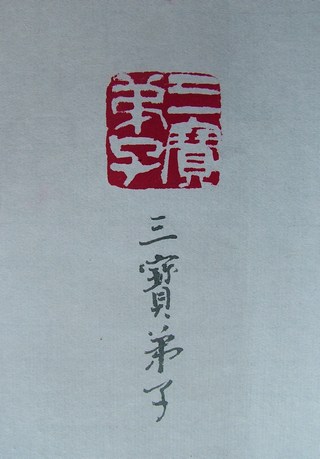 三寶
弟子
三寶弟子